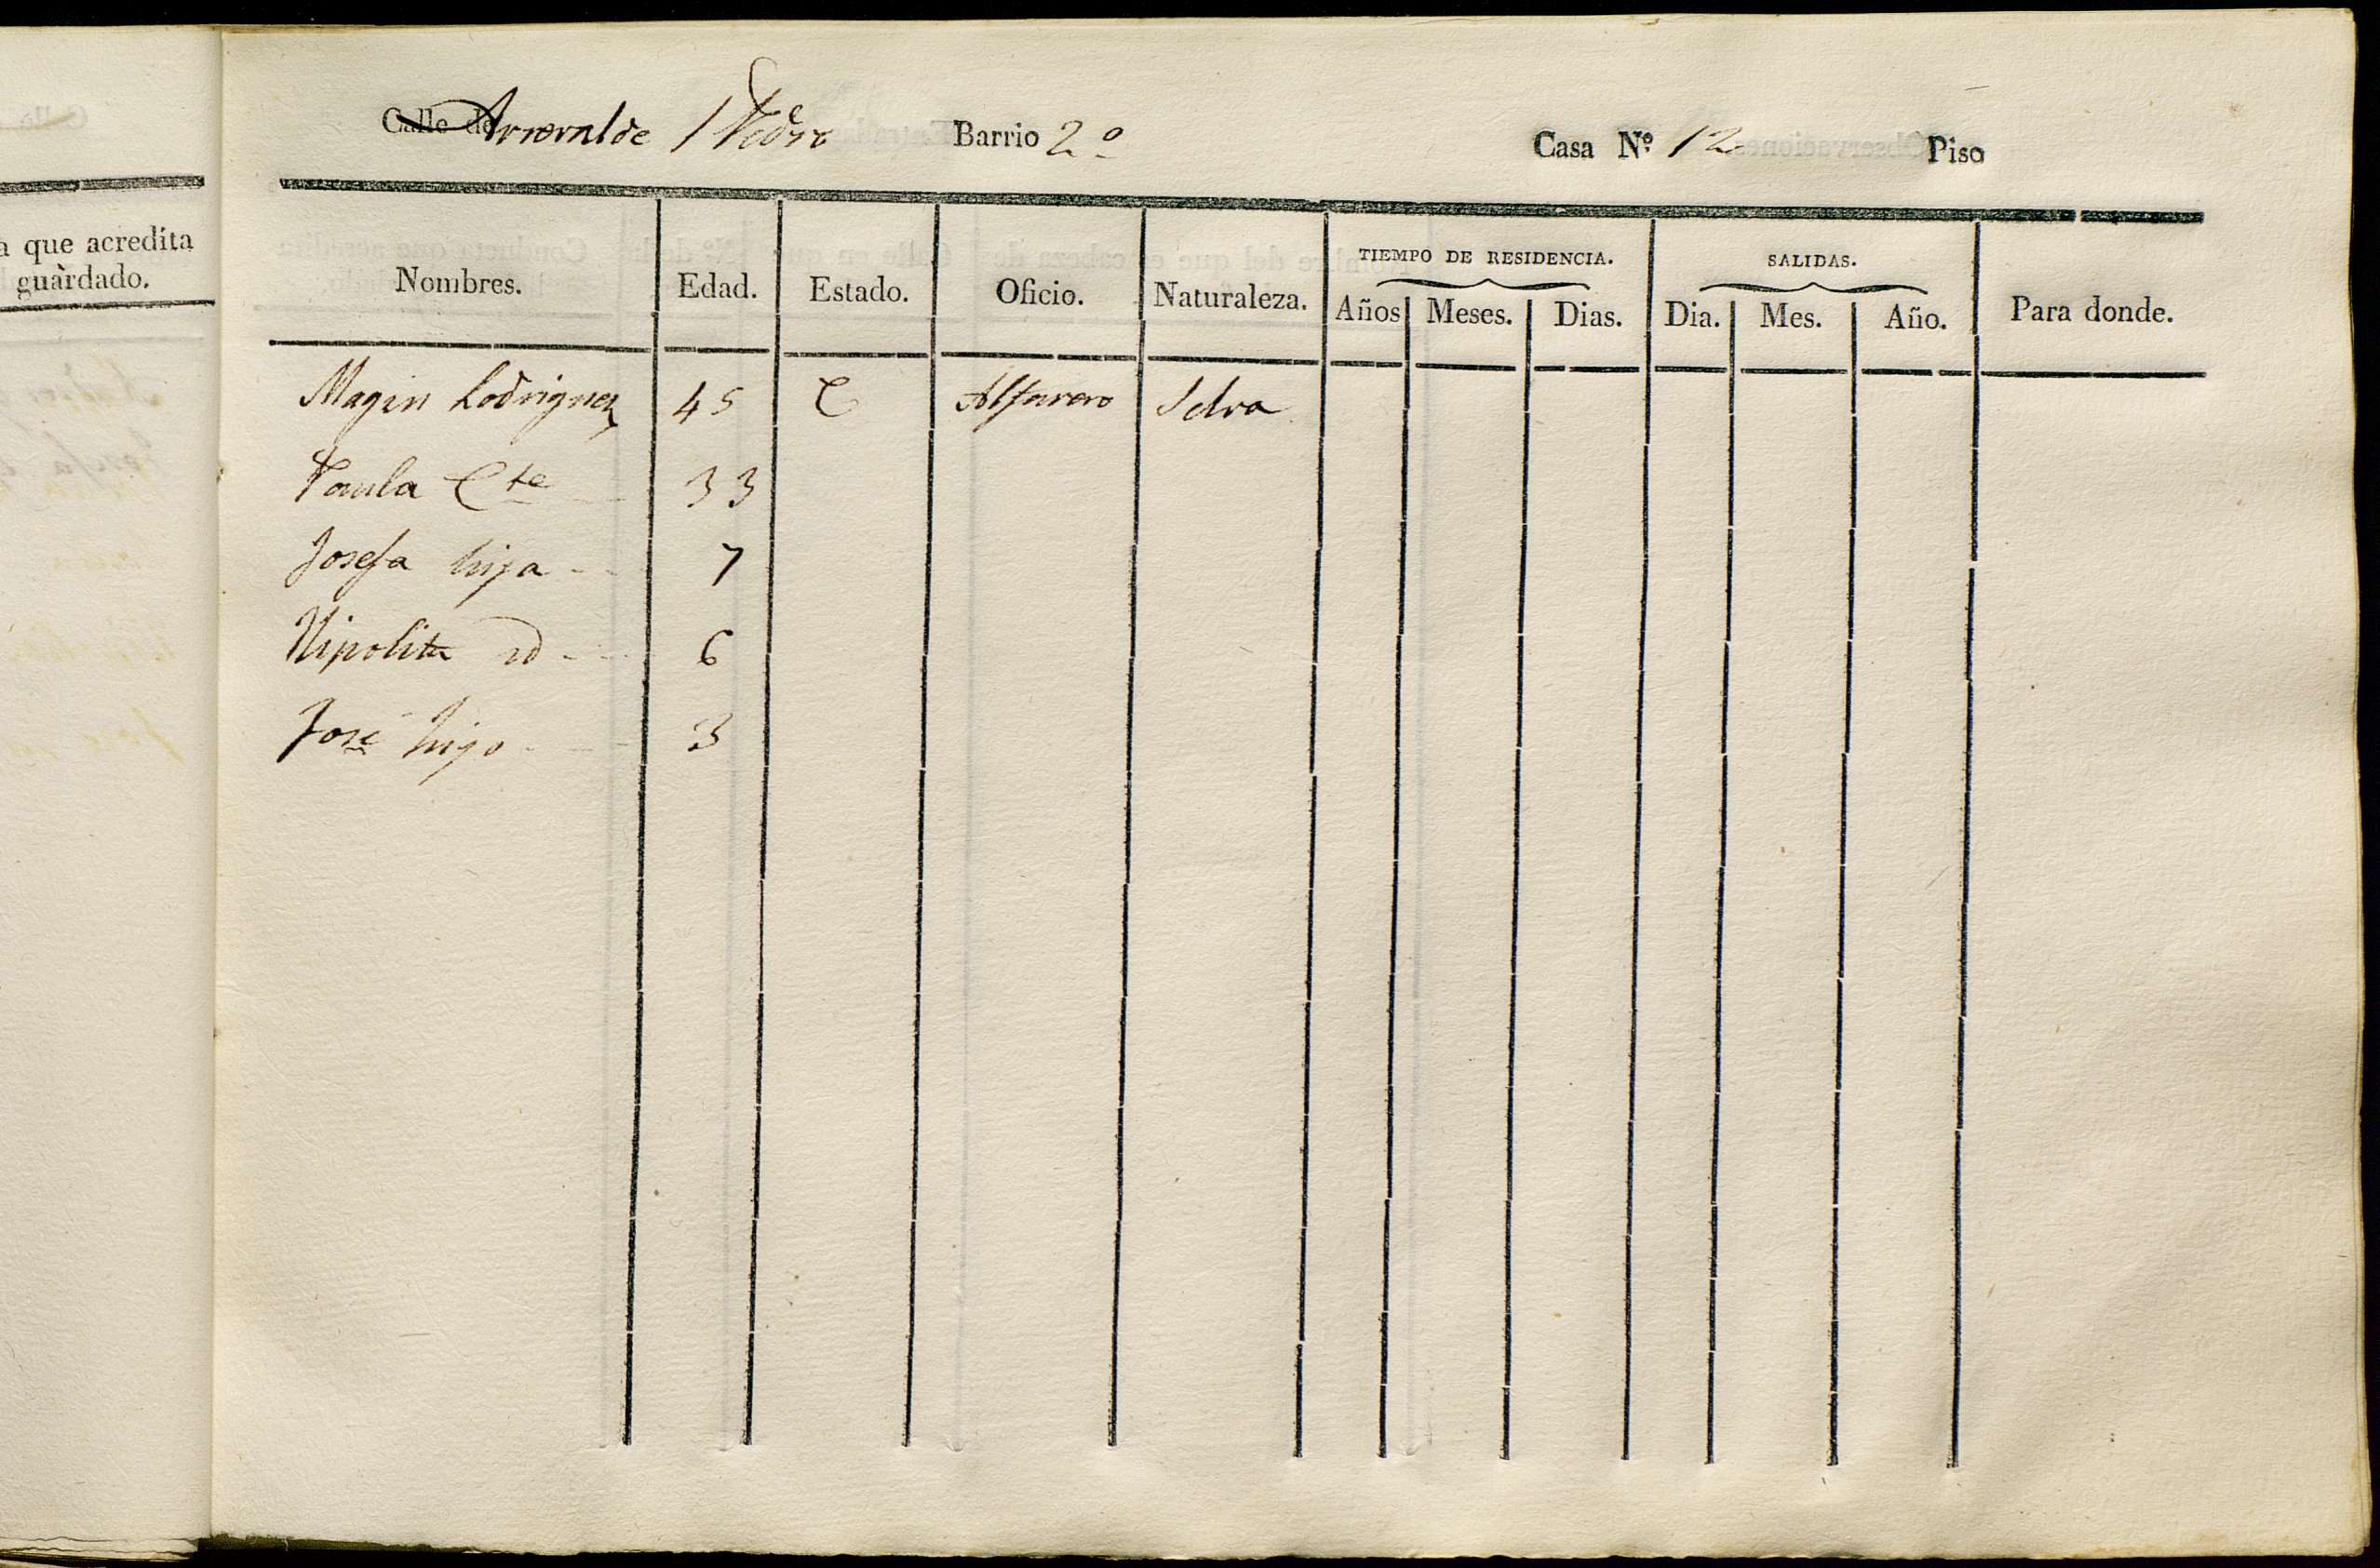 a que acredita
guardado.
Calle de Arraralde S Pedro Barrio 2º Casa Nº 12 Piso
Nombres. Edad. Estado. Oficio. Naturaleza. TIEMPO DE RESIDENCIA. SALIDAS. Para donde.
Años Meses. Dias. Dia. Mes. Año.
Magin Rodriguez 45 C Alfarero Selva
Paula Cte 33
Josefa hija 7
Hipolita id 6
José hijo 3